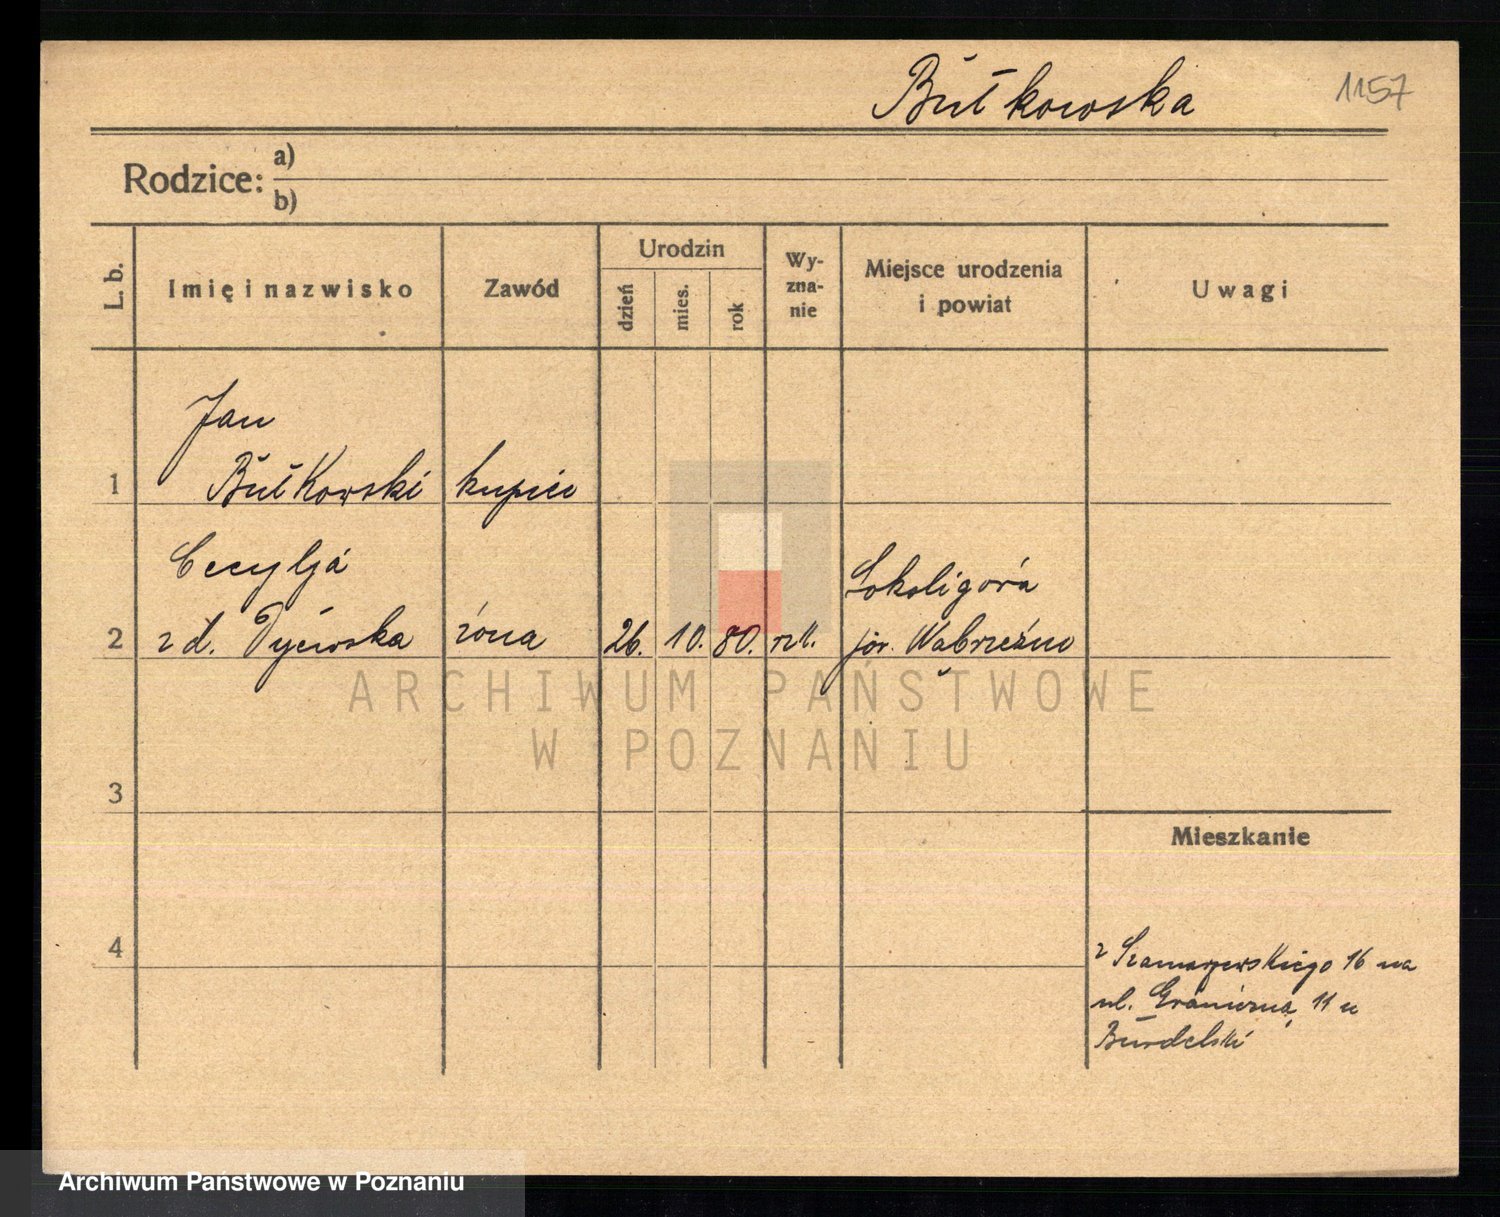 Bułkowska 1157
Rodzice: a)
b)
L. b. Imię i nazwisko Zawód Urodzin dzień mies. rok Wy-zna-nie Miejsce urodzenia i powiat Uwagi
Jan
1 Bułkowski kupiec
Cecylja
2 z d. żona 26. 10. 80. rzk. Sokoligóra
pow. Wąbrzeźno
3
4
Mieszkanie
z Szamarzewskiego 16 na
ul. Graniczną 11 u
Burdelski
ARCHIWUM PAŃSTWOWE
W POZNANIU
Archiwum Państwowe w Poznaniu